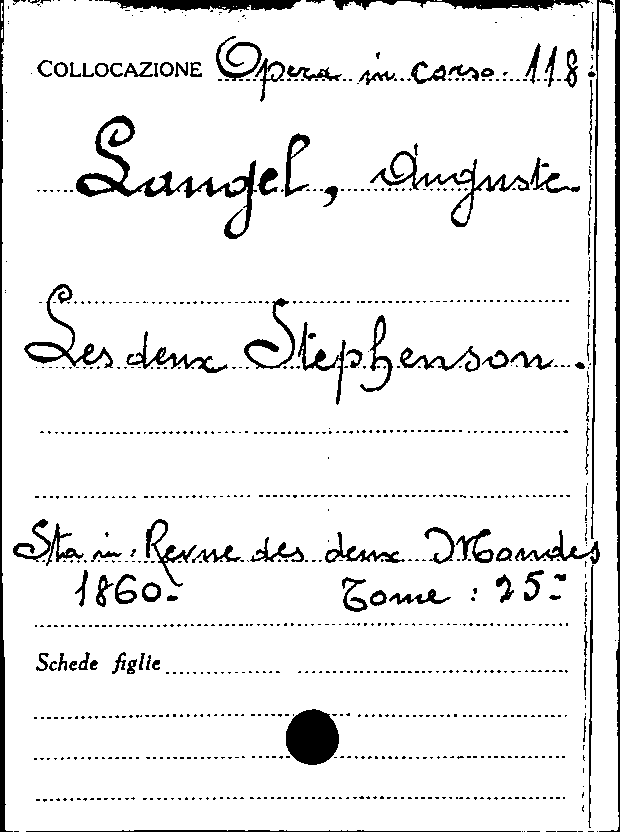 COLLOCAZIONE Opera in corso. 118.
Laugel, Auguste.
Les deux Stephenson.
Sta in: Revue des deux Mondes
1860.- Tome: 25.-
Schede figlie